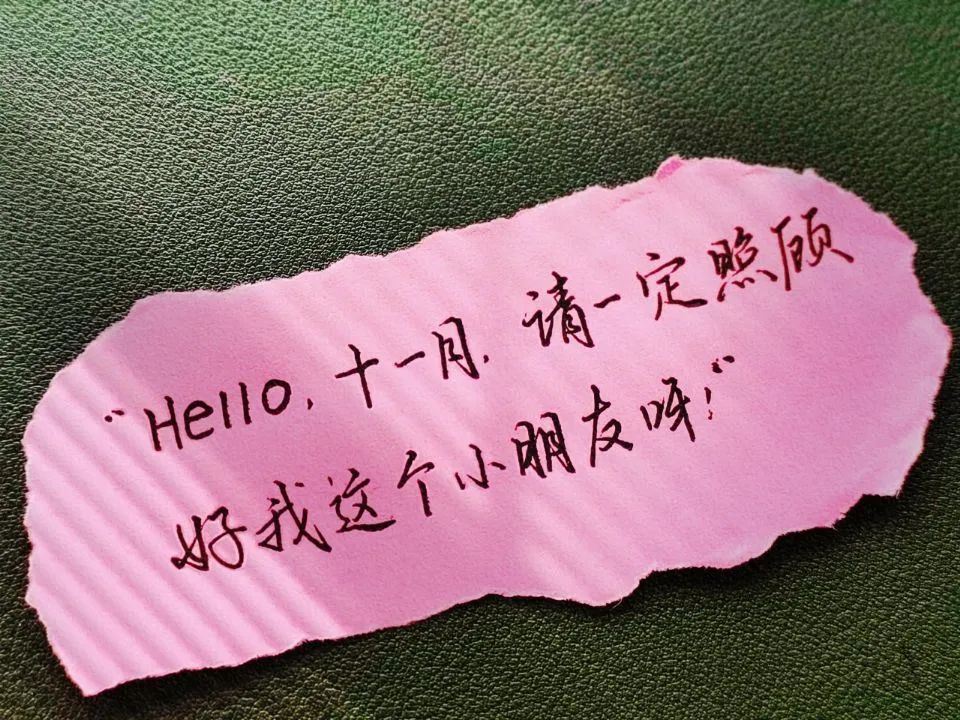 “Hello, 十一月, 请一定照顾
好我这个小朋友呀!”